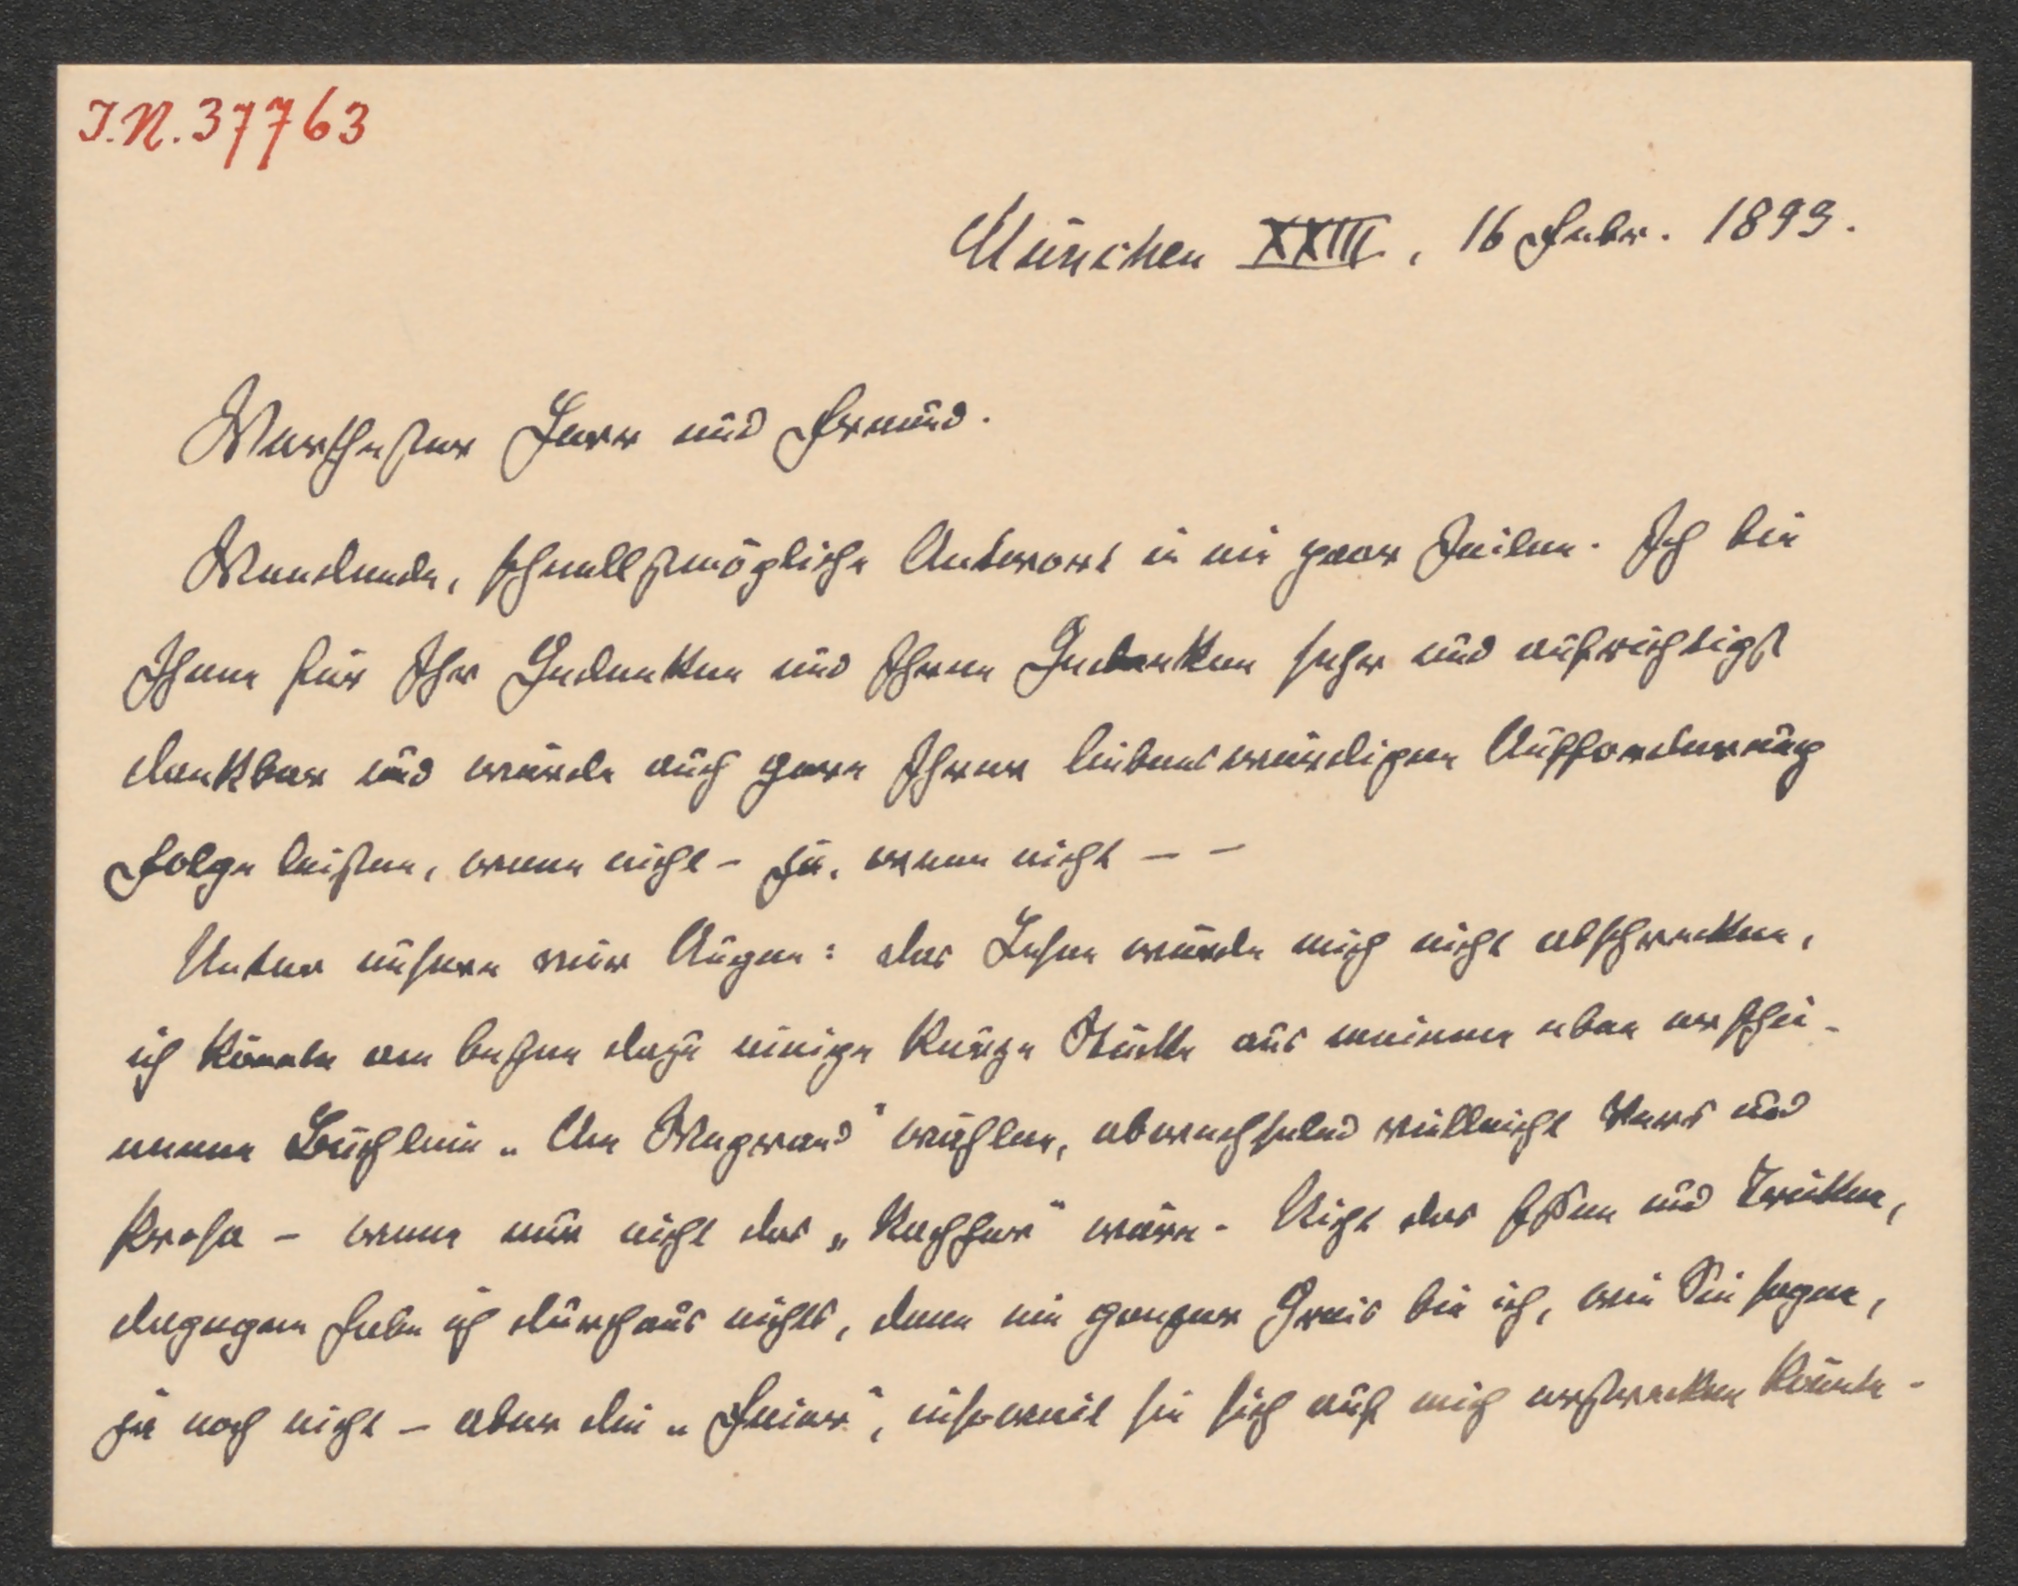 I.N. 37763
München XXIII, 16 Febr. 1899.
Werthester Herr und Freund.
Wendende, schnellstmögliche Antwort in ein paar Zeilen. Ich bin
Ihnen für Ihr Gedenken und Ihren Gedanken sehr und aufrichtigst
dankbar und würde auch gern Ihrer liebenswürdigen Aufforderung
Folge leisten, wenn nicht – ja, wenn nicht – –
Unter unsern vier Augen: das Lesen würde mich nicht abschrecken,
ich könnte am besten dazu einige kurze Stücke aus meinem eben erschie-
nenen Büchlein „Am Wegrand" wählen, abwechselnd vielleicht Vers und
Prosa – wenn nur nicht das „Nachher" wäre. Nicht das Essen und Trinken,
dagegen habe ich durchaus nichts, denn ein ganzer Greis bin ich, wie Sie sagen,
ja noch nicht – aber die „Feier", insoweit sie sich auf mich erstrecken könnte –